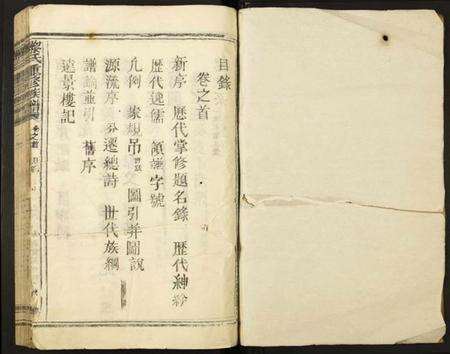 目錄
卷之首
新序 歷代掌修題名錄 歷代紳紗
歷代逸儒 頒譜字號
凡例 家規 吊 圖引并圖說
源流序 分遷總詩 世代族綱
譜論並引 舊序
遠景樓記
氏重修族譜 卷之首 目錄